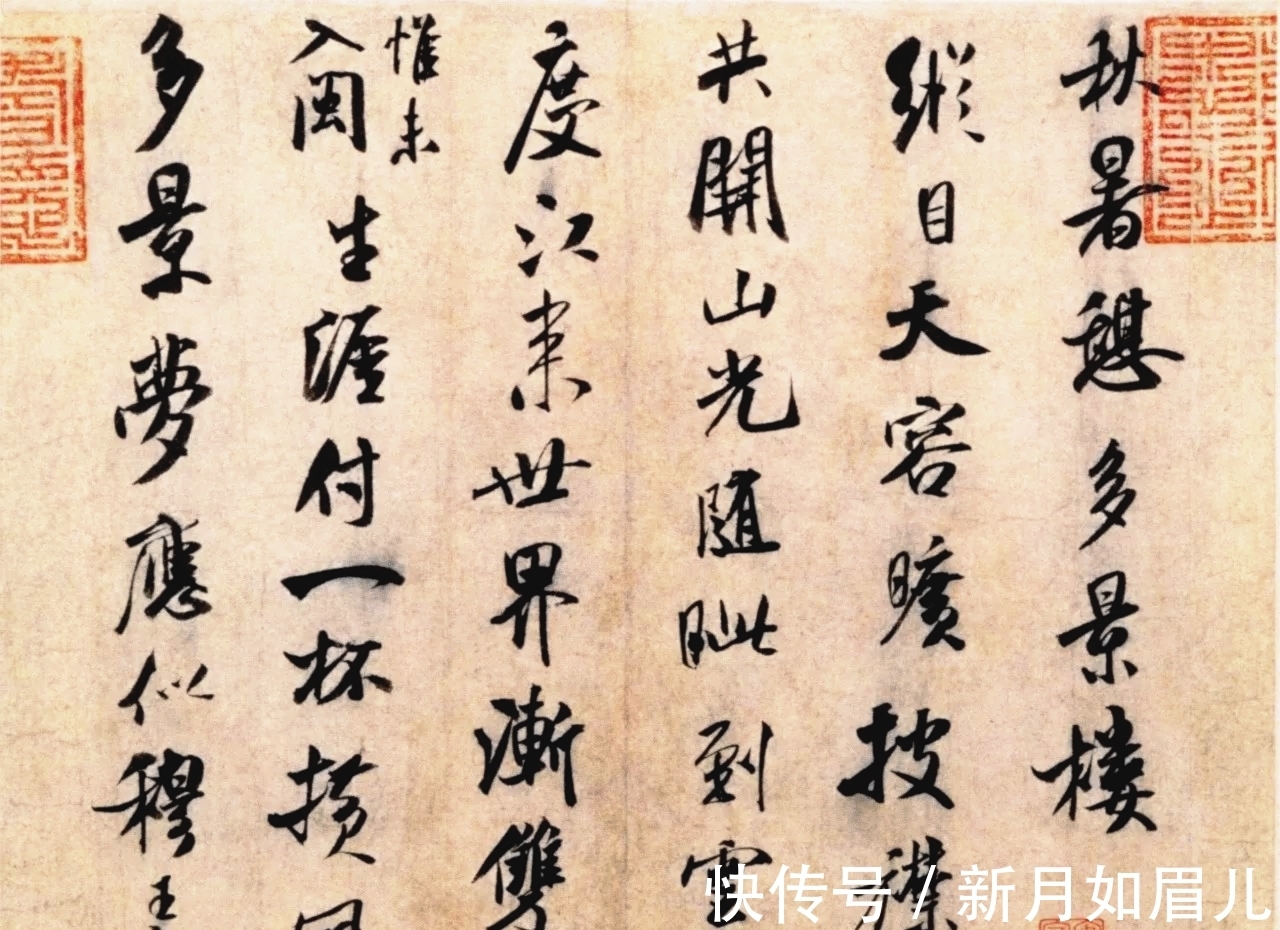 秋暑憩多景樓
縱目天容曠披襟
共開山光隨眦到雲
度江來世界漸雙
惟未
入閩生涯付一杯横
多景夢應似穆王
快传号 / 新月如眉儿